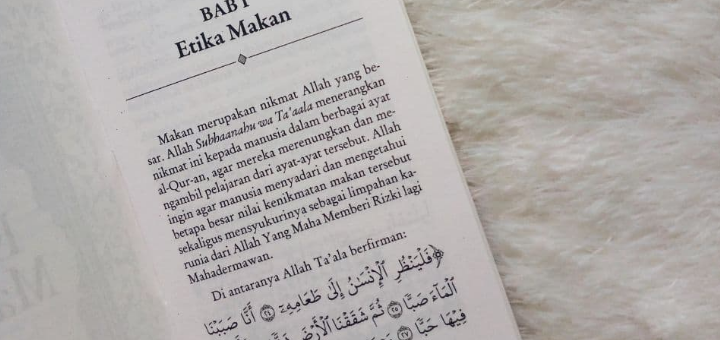 BAB I
Etika Makan
Makan merupakan nikmat Allah yang be-
sar. Allah Subhaanahu wa Ta'aala menerangkan
nikmat ini kepada manusia dalam berbagai ayat
al-Qur-an, agar mereka merenungkan dan me-
ngambil pelajaran dari ayat-ayat tersebut. Allah
ingin agar manusia menyadari dan mengetahui
betapa besar nilai kenikmatan makan tersebut
sekaligus mensyukurinya sebagai limpahan ka-
runia dari Allah Yang Maha Memberi Rizki lagi
Mahadermawan.
Di antaranya Allah Ta'ala berfirman:
﴿فَلْيَنظُرِ ٱلْإِنسَٰنُ إِلَىٰ طَعَامِهِۦٓ ٢٤ أَنَّا صَبَبْنَا
ٱلْمَآءَ صَبًّا ٢٥ ثُمَّ شَقَقْنَا ٱلْأَرْضَ
فِيهَا حَبًّا ٢٧